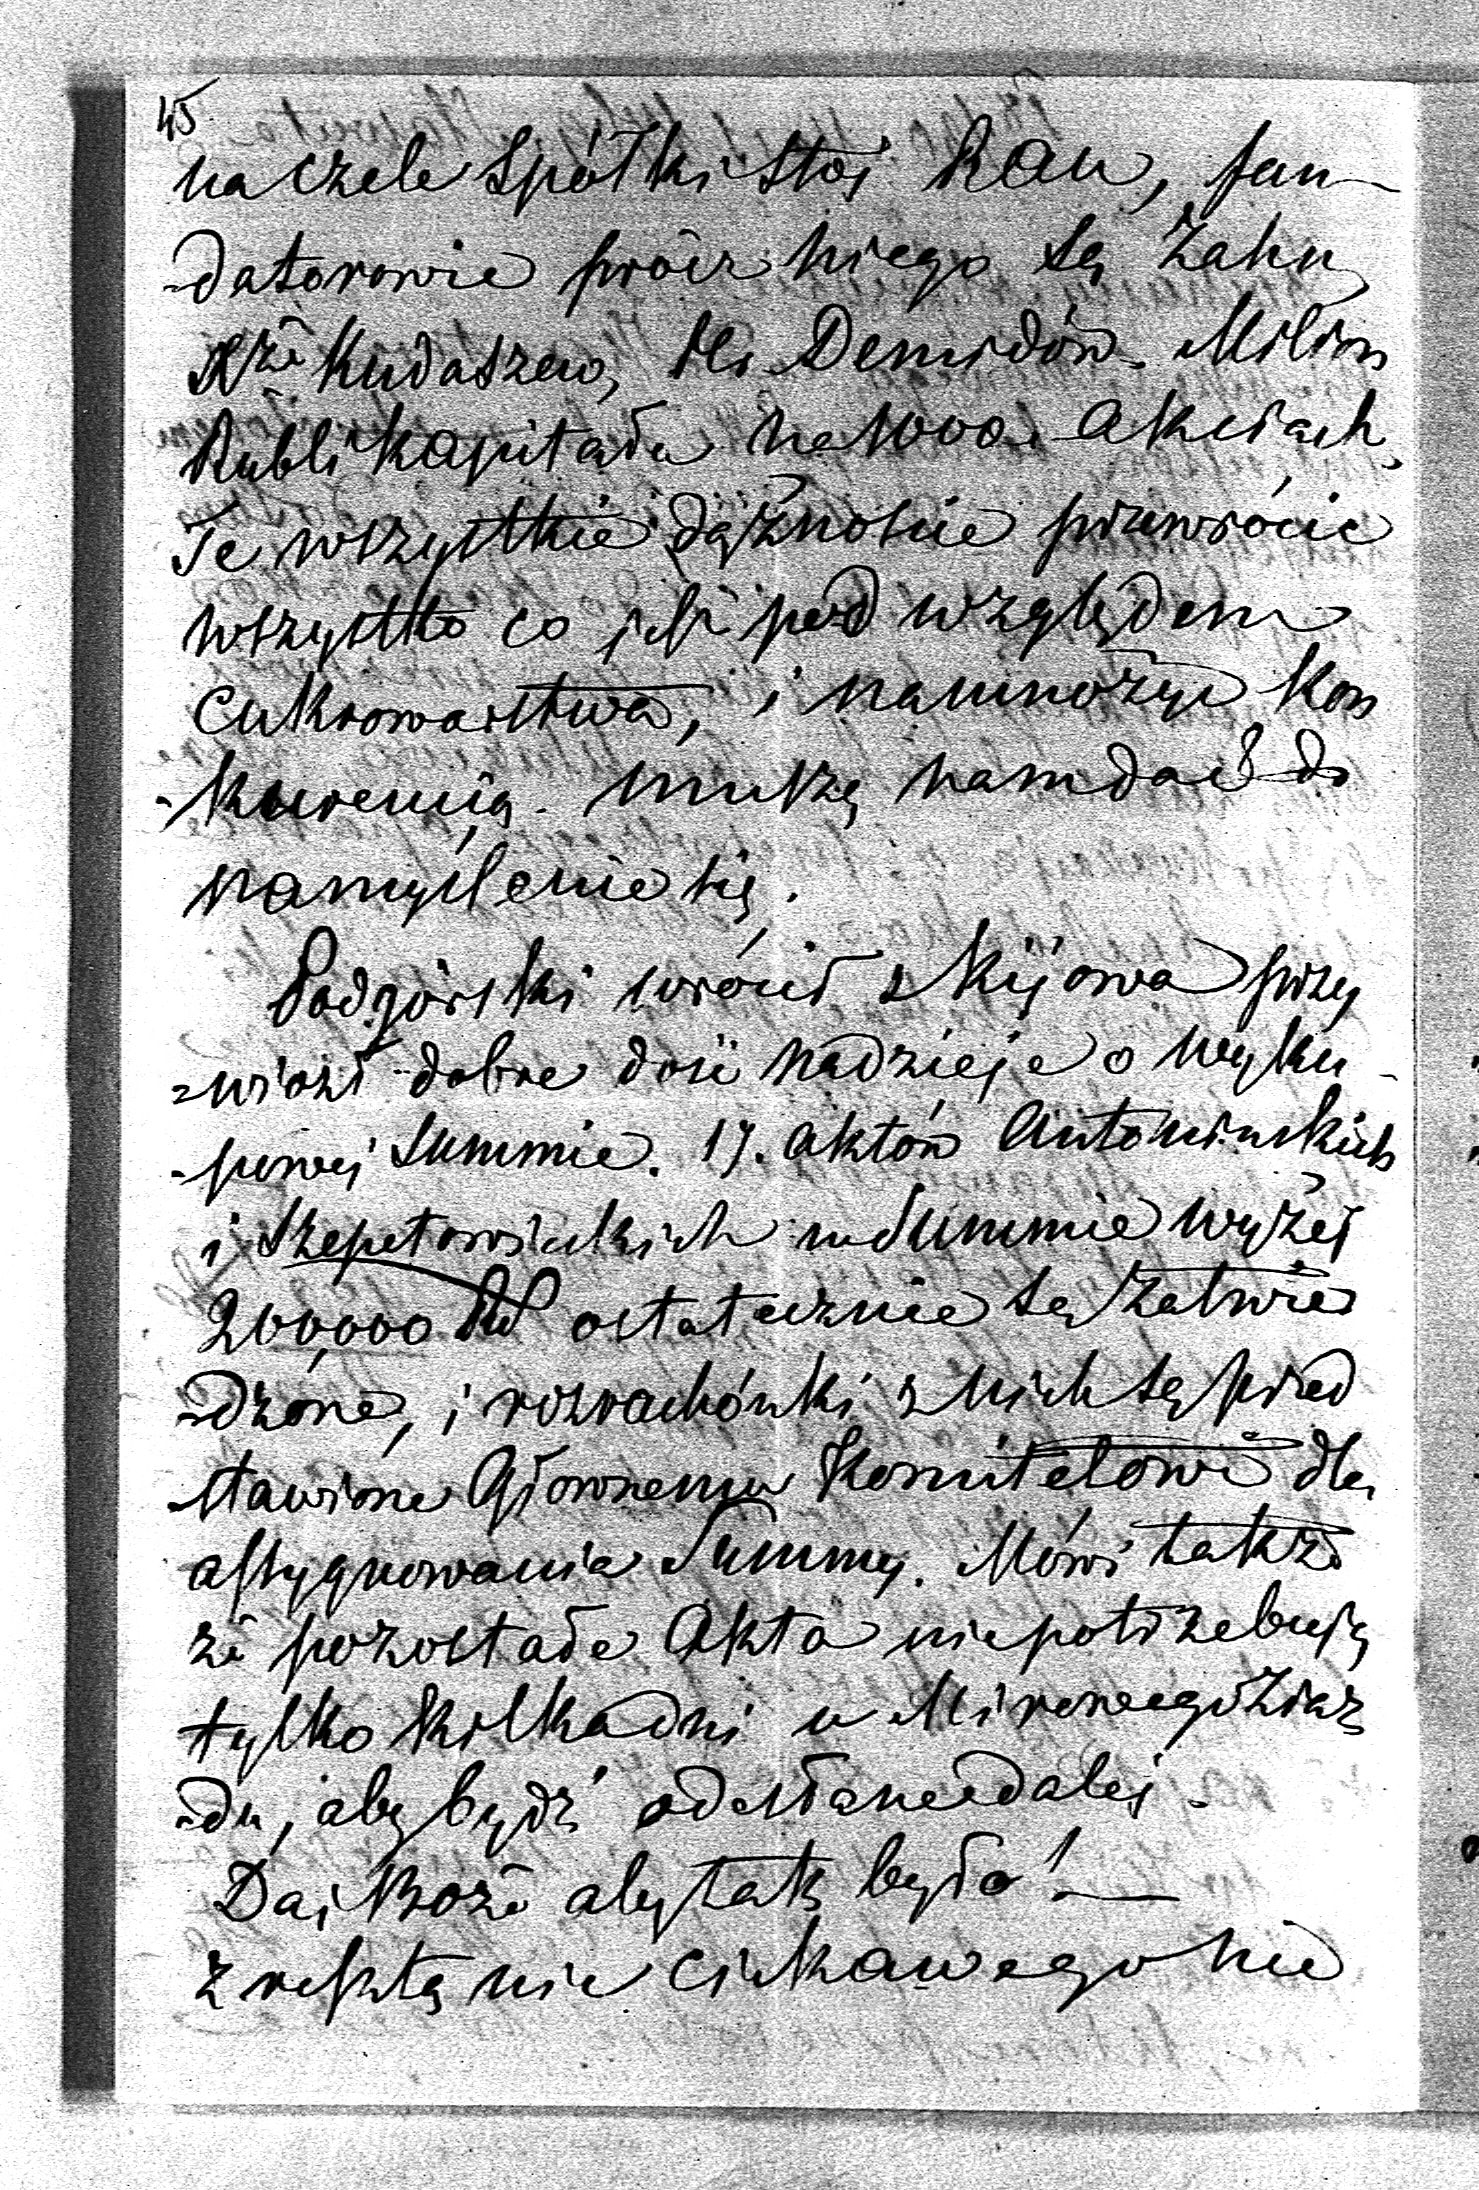 45
na czele Spółki stoi Rau, fun-
-datorowie prócz niego są Zahn
Xżę Kudaszew, Hr Demidów. Milion
Rubli kapitału na 1000 akciach,
Te wszystkie dążnoście przewrócić
wszystko co jest pod względem
cukrowarstwa, i namnożyć kon
-kurencią. muszą nam dać do
namyślenie się.
Podgórski wrócił z Kijowa przy
=wiozł dobre dość nadzieje o wyku-
-powej Summie. 17. aktów Antonińskich
i Szepetowieckich w Summie wyżej
200,000 RS ostatecznie są zatwier
-dzóne, i rozrachónki z nich są przed
-stawione Głównemu Komitetowi dla
assygnowania Summy. Mówi także
że pozostałe Akta niepotrzebują
tylko kilkadni u Mirowego Ziaz
-du, aby bydź odesłane dalej.
Daj Boże aby tak było! —
z resztą nic ciekawego nie